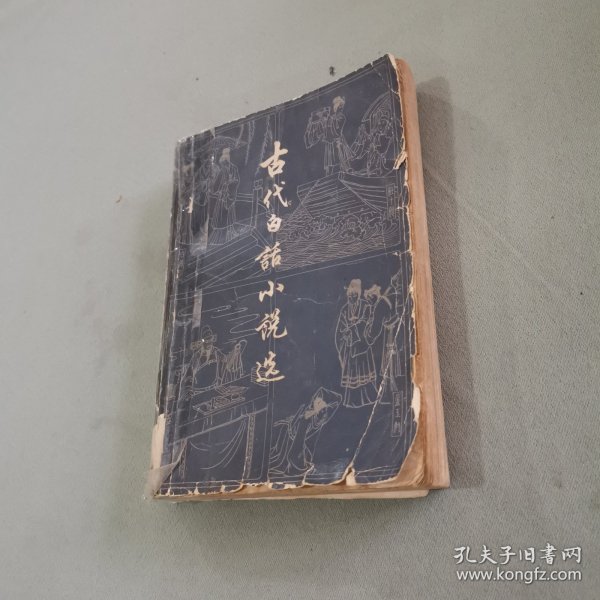 古代白话小说选
孔夫子旧书网
www.kongfz.com